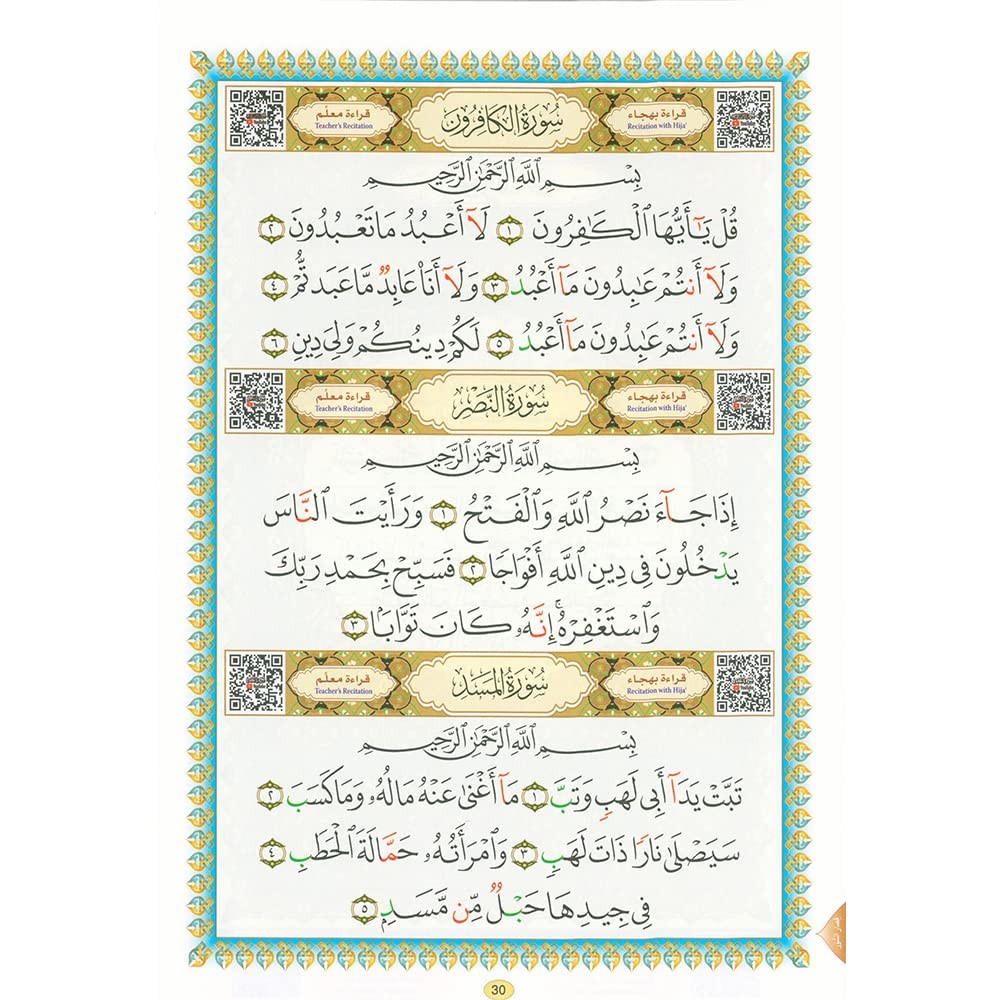 قراءة بهجاء
Recitation with Hija'
سُورَةُ الكَافِرُون
قراءة معلّم
Teacher's Recitation
بِسْمِ ٱللَّهِ ٱلرَّحْمَٰنِ ٱلرَّحِيمِ
قُلْ يَٰٓأَيُّهَا ٱلْكَٰفِرُونَ ١ لَآ أَعْبُدُ مَا تَعْبُدُونَ ٢
وَلَآ أَنتُمْ عَٰبِدُونَ مَآ أَعْبُدُ ٣ وَلَآ أَنَا۠ عَابِدٌ مَّا عَبَدتُّمْ ٤
وَلَآ أَنتُمْ عَٰبِدُونَ مَآ أَعْبُدُ ٥ لَكُمْ دِينُكُمْ وَلِىَ دِينِ ٦
قراءة بهجاء
Recitation with Hija'
سُورَةُ النَّصْر
قراءة معلّم
Teacher's Recitation
بِسْمِ ٱللَّهِ ٱلرَّحْمَٰنِ ٱلرَّحِيمِ
إِذَا جَآءَ نَصْرُ ٱللَّهِ وَٱلْفَتْحُ ١ وَرَأَيْتَ ٱلنَّاسَ
يَدْخُلُونَ فِى دِينِ ٱللَّهِ أَفْوَاجًا ٢ فَسَبِّحْ بِحَمْدِ رَبِّكَ
وَٱسْتَغْفِرْهُ ۚ إِنَّهُۥ كَانَ تَوَّابَۢا ٣
قراءة بهجاء
Recitation with Hija'
سُورَةُ المَسَد
قراءة معلّم
Teacher's Recitation
بِسْمِ ٱللَّهِ ٱلرَّحْمَٰنِ ٱلرَّحِيمِ
تَبَّتْ يَدَآ أَبِى لَهَبٍ وَتَبَّ ١ مَآ أَغْنَىٰ عَنْهُ مَالُهُۥ وَمَا كَسَبَ ٢
سَيَصْلَىٰ نَارًا ذَاتَ لَهَبٍ ٣ وَٱمْرَأَتُهُۥ حَمَّالَةَ ٱلْحَطَبِ ٤
فِى جِيدِهَا حَبْلٌ مِّن مَّسَدٍۭ ٥
30